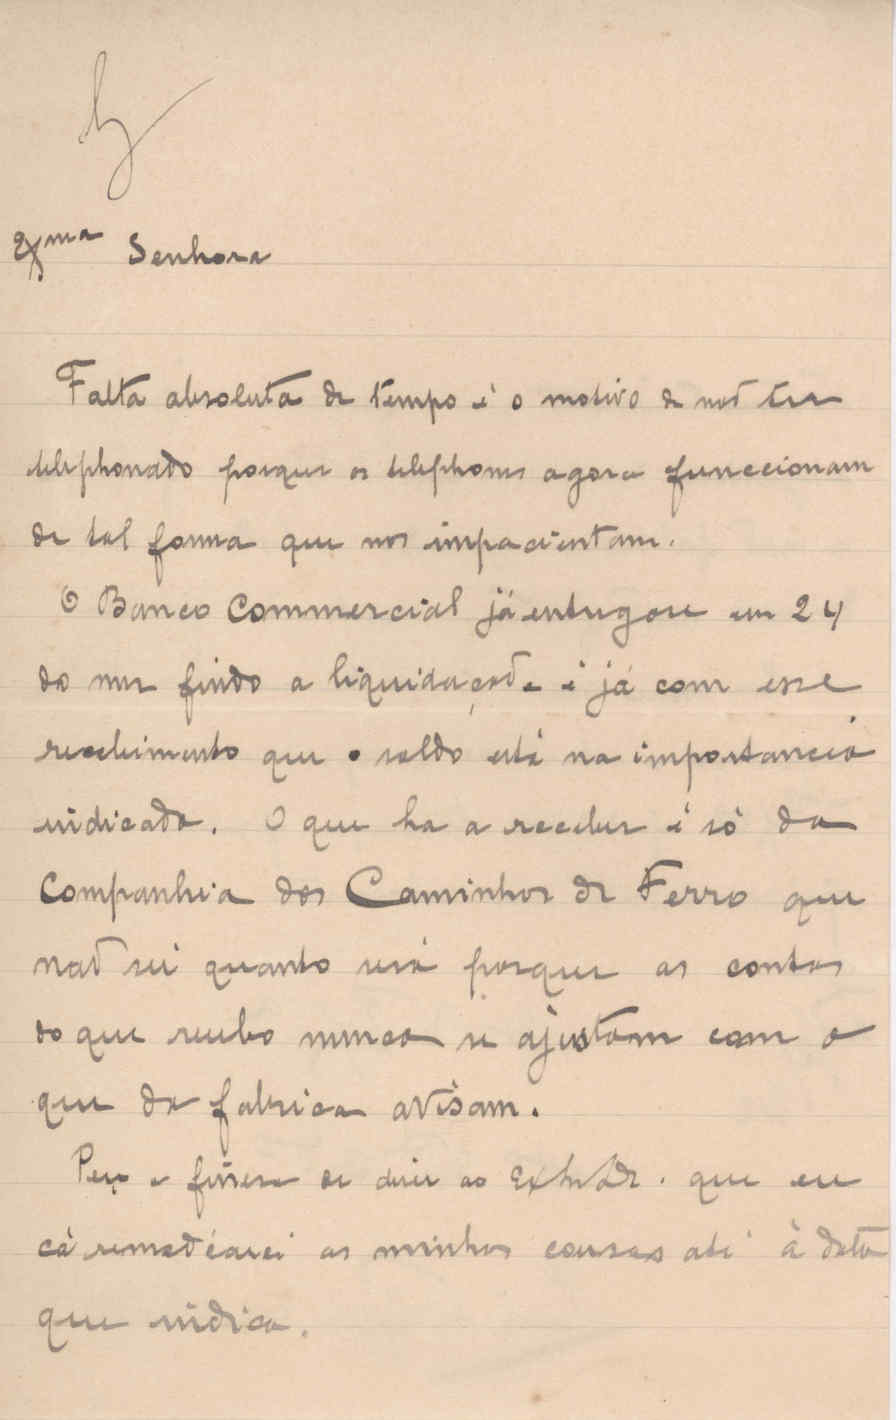 Exma Senhora
Falta absoluta de tempo é o motivo de não ter
telephonado porque os telephones agora funccionam
de tal forma que nos impacientam.
O Banco Commercial já entregou em 24
do mez findo a liquidação e é já com esse
recebimento que o saldo está na importancia
indicada. O que ha a receber é só da
Companhia dos Caminhos de Ferro que
não sei quanto será porque as contas
do que recebo nunca se ajustam com o
que da fabrica avisam.
Peço a fineza de dizer ao que eu
cá remedearei as minhas cousas até à data
que indica.